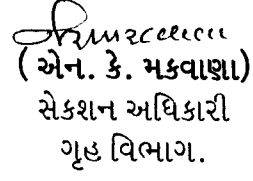 (એન. કે. મકવાણા)
સેક્શન અધિકારી
ગૃહ વિભાગ.